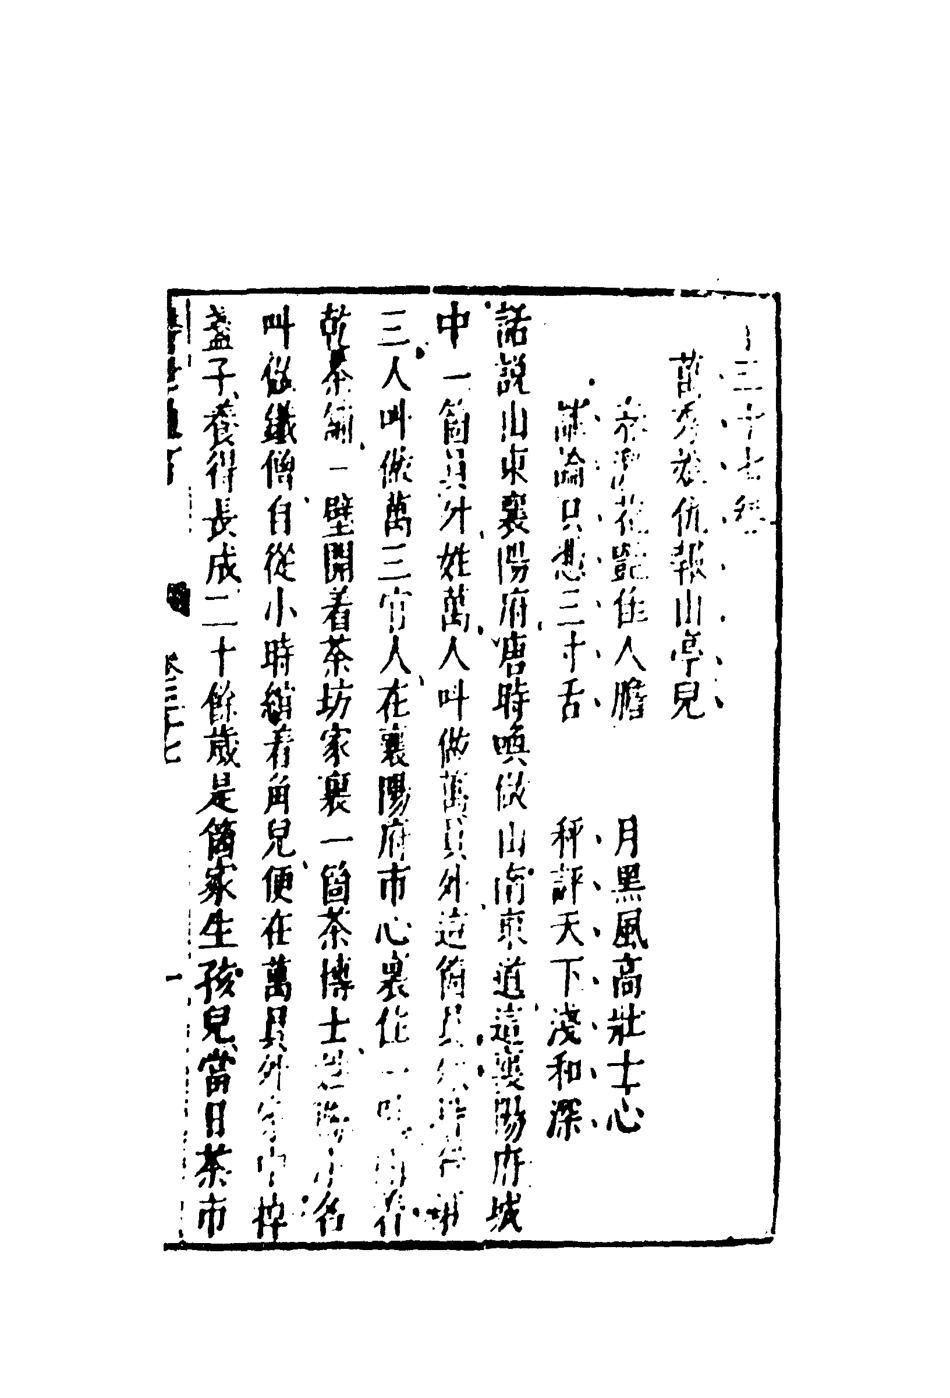 三十七卷
萬秀娘仇報山亭兒
春濃花豔佳人膽 月黑風高壯士心
講論只憑三寸舌 秤評天下淺和深
話説山東襄陽府唐時喚做山南東道這襄陽府城
中一箇員外姓萬人叫做萬員外這箇員外排行第
三人叫做萬三官人在襄陽府市心裏住一壁開着
乾茶鋪一壁開着茶坊家裏一箇茶博士姓陶小名
叫做鐵僧自從小時綰着角兒便在萬員外家中掉
盞子養得長成二十餘歲是箇家生孩兒當日茶市
警世通言 卷三十七 一